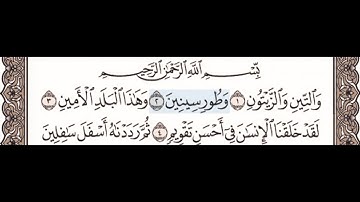 بِسْمِ اللَّهِ الرَّحْمَٰنِ الرَّحِيمِ
وَالتِّينِ وَالزَّيْتُونِ ١ وَطُورِ سِينِينَ ٢ وَهَٰذَا الْبَلَدِ الْأَمِينِ ٣
لَقَدْ خَلَقْنَا الْإِنسَانَ فِي أَحْسَنِ تَقْوِيمٍ ٤ ثُمَّ رَدَدْنَاهُ أَسْفَلَ سَافِلِينَ